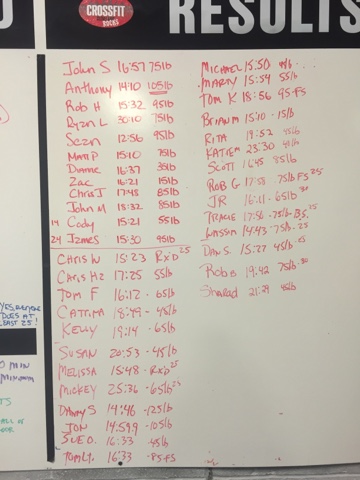 CROSSFIT
SOCKS
RESULTS
John S 16:57 75lb
Anthony 14:10 105lb
Rob H 15:32 95lb
Ryan L 30:10 75lb
Sean 12:56 95lb
Matt P 15:10 75lb
Dianne 16:37 35lb
Zac 16:21 15lb
Chris J 17:45 85lb
John M 18:32 85lb
14 Cody 15:21 55lb
24 James 15:30 95lb
Chris W 15:23 Rx'D 25
Chris H2 17:25 55lb
Tom F 16:12 · 65lb
Catrina 18:49 - 45lb
Kelly 19:14 · 65lb
Susan 20:53 - 45lb
Melissa 15:48 · RxD 25
Mickey 25:36 · 65lb 25
Danny S 14:46 · 125lb
Jon 14:59.9 · 105lb
Sue O. 16:33 45lb
Tom L. 16:33 · 85 FS
Michael 15:50
Marty 15:54 55lb
Tom K 18:56 95-FS
Brian M 15:10 · 15lb
Rita 19:52 45lb
Katie M 23:30
Scott 16:45 85lb
Rob G 17:58 75lb FS 25
JR 16:11 - 65lb
Tracie 17:56 · 75lb · BS 25
14:43 · 75lb · 25
Dan S. 15:27 45lb
Rob B 19:42 75lb
21:29 45lb
YES, everyone
DOES AT
LEAST 25!
MIN